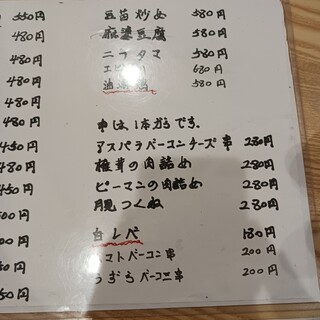 550円
480円
480円
480円
480円
480円
450円
480円
450円
豆苗炒め 580円
麻婆豆腐 580円
ニラタマ 580円
680円
580円
串は、1本からです。
アスパラベーコンチーズ串 280円
椎茸の肉詰め 280円
ピーマンの肉詰め 280円
月見つくね 280円
白レバ 180円
トマトベーコン串 200円
うずらベーコン串 200円